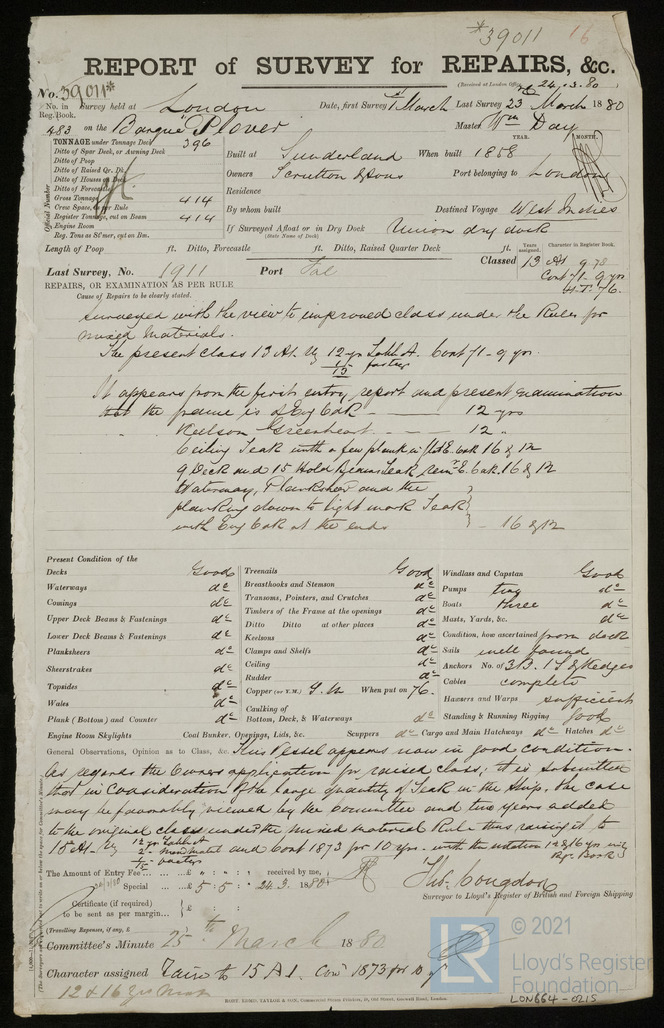 *39011 16
REPORT of SURVEY for REPAIRS, &c.
(Received at London Office, 24.3.80)
No. 39011*
No. in Reg. Book. Survey held at London Date, first Survey 1st March Last Survey 23 March 1880
483 on the Barque "Plover" Master Wm Day
TONNAGE under Tonnage Deck 396
Ditto of Spar Deck, or Awning Deck
Ditto of Poop
Ditto of Raised Qr. Dk.
Ditto of Houses on Deck
Ditto of Forecastle
Gross Tonnage 414
Crew Space, as per Rule
Register Tonnage, cut on Beam 414
Engine Room
Reg. Tons as St'mer, cut on Bm.
Official Number
YEAR. MONTH.
Built at Sunderland When built 1858
Owners Scrutton & Sons Port belonging to London
Residence
By whom built Destined Voyage West Indies
If Surveyed Afloat or in Dry Dock Union dry dock
(State Name of Dock)
Length of Poop ft. Ditto, Forecastle ft. Ditto, Raised Quarter Deck ft.
Years assigned. Character in Register Book.
Classed 13 A1 9.78
Cont 71-9 yrs
H.T. 76.
Last Survey, No. 1911 Port Fal
REPAIRS, OR EXAMINATION AS PER RULE
Cause of Repairs to be clearly stated.
Surveyed with the view to improved class under the Rules for
mixed Materials.
The present class 13 A1. 12 yrs Table A. Cont 71-9 yrs.
It appears from the first entry report and present examination
that the frame is of Eng Oak — 12 yrs
Keelson Greenheart — 12 "
Ceiling Teak with a few plank in fld E. oak 16 & 12
9 Deck and 15 Hold Beams Teak remr E. Oak. 16 & 12
Waterway, Planksheer and the
planking down to light mark Teak
with Eng Oak at the ends } - 16 & 12
Present Condition of the
Decks Good
Waterways do
Comings do
Upper Deck Beams & Fastenings do
Lower Deck Beams & Fastenings do
Planksheers do
Sheerstrakes do
Topsides do
Wales do
Plank (Bottom) and Counter do
Engine Room Skylights Coal Bunker, Openings, Lids, &c.
Treenails Good
Breasthooks and Stemson do
Transoms, Pointers, and Crutches do
Timbers of the Frame at the openings do
Ditto Ditto at other places do
Keelsons do
Clamps and Shelfs do
Ceiling do
Rudder do
Copper (or Y.M.) Y.M. When put on 76.
Caulking of
Bottom, Deck, & Waterways do
Scuppers do Cargo and Main Hatchways do Hatches do
Windlass and Capstan Good
Pumps two do
Boats three do
Masts, Yards, &c. do
Condition, how ascertained from deck
Sails well found
Anchors No. of 3B. 1S & Kedges
Cables complete
Hawsers and Warps sufficient
Standing & Running Rigging good
General Observations, Opinion as to Class, &c. This Vessel appears now in good condition.
As regards the Owners application for raised class; it is submitted
that in consideration of the large quantity of Teak in the Ship, the case
may be favorably viewed by the Committee and two years added
to the original class under the mixed material Rule thus raising it to
15 A1. 12 yrs Table A
2 - mixed matl
and Cont 1873 for 10 yrs. with the notation 12 & 16 yrs
Reg. Book
The Amount of Entry Fee ... £ : : received by me,
Special ... £ 5 : 5 : 24.3. 1880
Certificate (if required)
to be sent as per margin... } £ : :
(Travelling Expenses, if any, £
Thos. Congdon
Surveyor to Lloyd's Register of British and Foreign Shipping
Committee's Minute 25th March 1880
Character assigned 15 A1. Con 1873 for 10 yrs
12 & 16 yrs
ROBT. KEMP, TAYLOR & SON, Commercial Steam Printers, 19, Old Street, Goswell Road, London.
LR
© 2021
Lloyd's Register
Foundation
LON664-0215